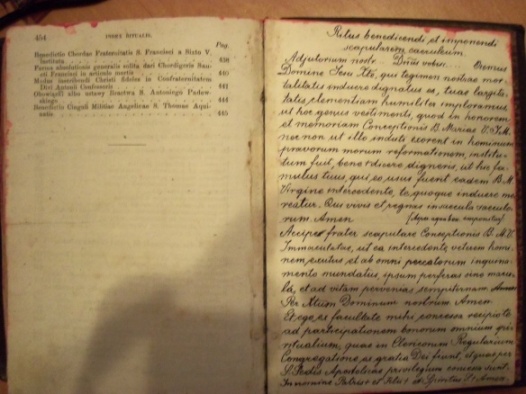 454 INDEX RITUALIS.
Pag.
Benedictio Chordae Fraternitatis S. Francisci a Sixto V.
instituta 438
Forma absolutionis generalis solita dari Chordigeris San-
cti Francisci in articulo mortis 440
Modus inscribendi Christi fideles in Confraternitatem
Divi Antonii Confessoris 441
444
Benedictio Cinguli Militiae Angelicae S. Thomae Aqui-
natis 445
Ritus benedicendi et imponendi
scapularem caeruleum
Adjutorium nostr. Dnus vobis... Oremus
Domine Jesu Xte, qui tegimen nostrae mor-
talitatis induere dignatus es, tuae largita-
tatis clementiam humiliter imploramus,
ut hoc genus vestimenti, quod in honorem
et memoriam Conceptionis B. Mariae V. I.
nec non ut illo induti exorent in hominum
pravorum morum reformationem, institu-
tum fuit, benedicere digneris, ut hic fa-
mulus tuus, qui eo usus fuerit eadem B. M.
Virgine intercedente, te quoque induere me-
reatur. Qui vivis et regnas in saecula saeculo-
rum. Amen
Accipe frater scapulare Conceptionis B. M. V.
Immaculatae, ut ea intercedente, vetere homi-
nem exutus et ab omni peccatorum inquina-
mento mundatus, ipsum perferas sine macu-
la, et ad vitam pervenias sempiternam
Per Xtum Dominum nostrum Amen
Et ego, ex facultate mihi concessa recipio te
ad participationem bonorum omnium spiri-
tualium, quae in Clericorum Regularium
Congregatione, ex gratia Dei fiunt, et quae per
S. Sedis Apostolicae privilegium concessa sunt.
In nomine Patris et Filii et Spiritus S. Amen.